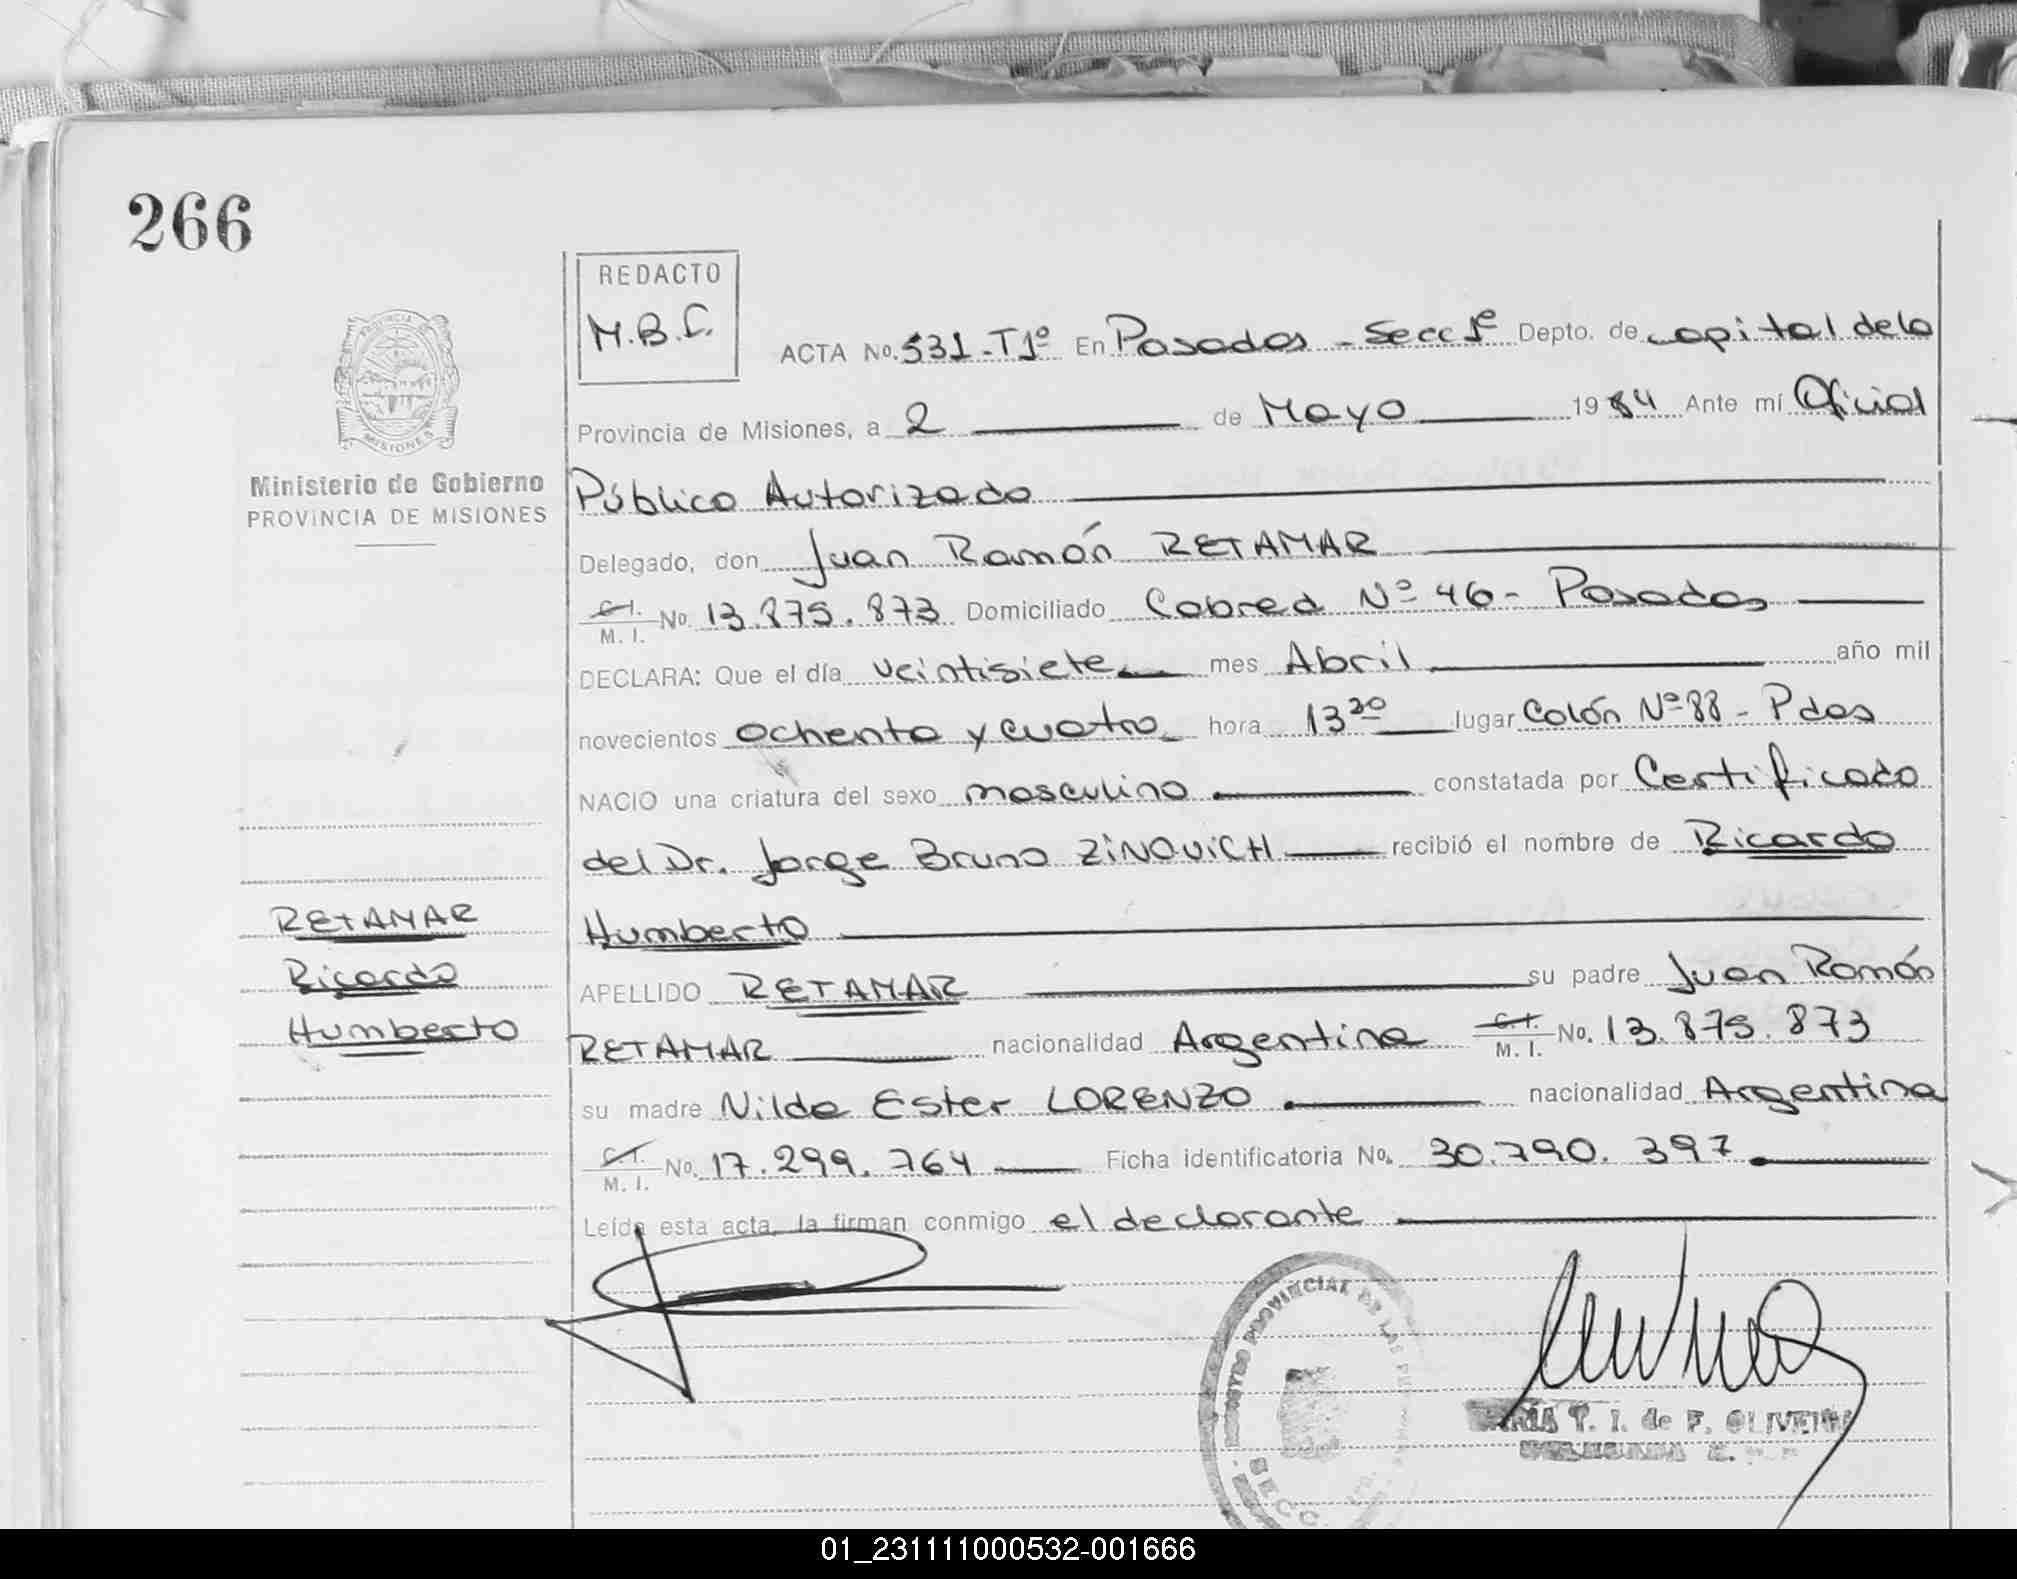 266
REDACTO
M.B.C.
PROVINCIA DE
MISIONES
Ministerio de Gobierno
PROVINCIA DE MISIONES
ACTA No. 531-T1º En Posadas - Secc 1ª Depto. de capital de la
Provincia de Misiones, a 2 de Mayo 1984 Ante mí Oficial
Público Autorizado
Delegado, don Juan Ramón RETAMAR
C.I.
M. I. No. 13.875.873 Domiciliado Cabred Nº 46 - Posadas
DECLARA: Que el día veintisiete mes Abril año mil
novecientos ochenta y cuatro hora 13 30 lugar Colón Nº 88 - Pdas
NACIO una criatura del sexo masculino constatada por Certificado
del Dr. Jorge Bruno ZINOVICH recibió el nombre de Ricardo
Humberto
APELLIDO RETAMAR su padre Juan Ramón
RETAMAR nacionalidad Argentina C.I. M. I. No. 13.875.873
su madre Nilda Ester LORENZO nacionalidad Argentina
C.I.
M. I. No. 17.299.764 Ficha identificatoria No. 30.790.397
Leída esta acta, la firman conmigo el declarante
RETAMAR
Ricardo
Humberto
REGISTRO PROVINCIAL DE LAS
SECC.
MARIA T. I. de F. OLIVEIRA
01_231111000532-001666